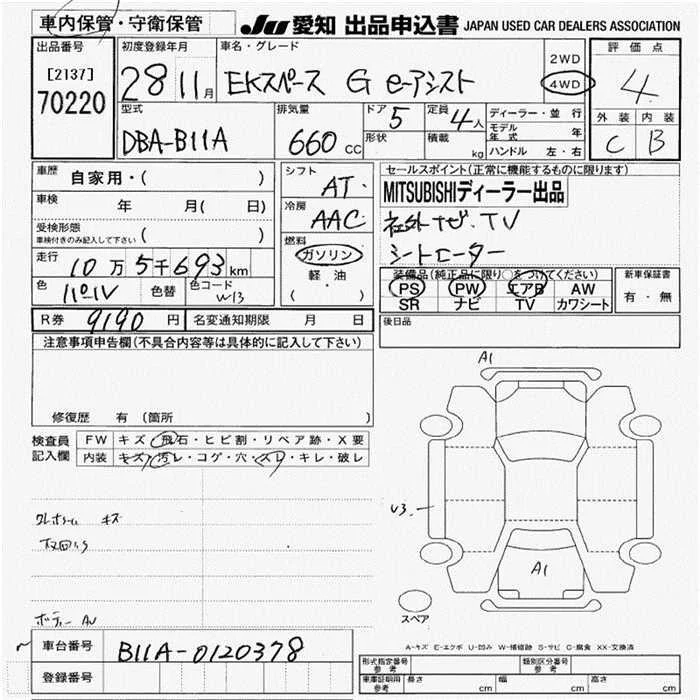 車内保管・守衛保管
JU 愛知 出品申込書 JAPAN USED CAR DEALERS ASSOCIATION
出品番号
[2137]
70220
初度登録年月
28 11月
車名・グレード
EKスペース G e-アシスト
2WD
4WD
評価点
4
外装 内装
C B
型式
DBA-B11A
排気量
660 CC
ドア 5
形状
定員 4人
積載 kg
ディーラー・並行
モデル年式 年
ハンドル 左・右
車歴
自家用・( )
車検 年 月( 日)
受検形態
車検付きのみ記入して下さい ( )
走行 10万5千693km
色 パール 色替 色コード W13
シフト AT
冷房 AAC
燃料
ガソリン
軽油
( ・ )
セールスポイント(正常に機能するものに限ります)
MITSUBISHIディーラー出品
社外ナビ.TV
シートヒーター
装備品(純正品に限り○をつけてください)
PS PW エアB AW
SR ナビ TV カワシート
新車保証書
有・無
R券 9190円 名変通知期限 月 日
後日品
注意事項申告欄(不具合内容等は具体的に記入して下さい)
修復歴 有 (箇所 )
検査員記入欄
FW キズ・飛石・ヒビ割・リペア跡・X要
内装 キズ・汚レ・コゲ・穴・スレ・キレ・破レ
キズ
ボディー AU
A1
U3
A1
スペア
A-キズ E-エクボ U-凹み W-補修跡 S-サビ C-腐食 XX-交換済
車台番号 B11A-0120378
登録番号
形式指定番号 参考
類別区分番号 参考
車庫証明用 参考
長さ cm 幅 cm 高さ cm